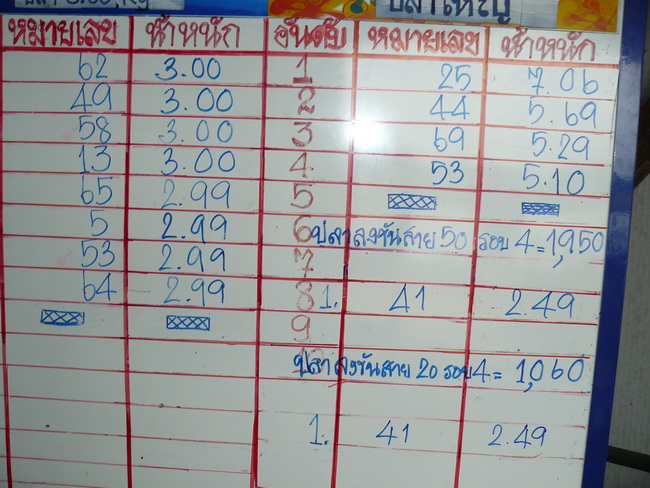 ปลา 3.00,Kg ปลาใหญ่
หมายเลข น้ำหนัก อันดับ หมายเลข น้ำหนัก
62 3.00 1 25 7.06
49 3.00 2 44 5.69
58 3.00 3 69 5.29
13 3.00 4 53 5.10
65 2.99 5
5 2.99 6 ปลาลงขันสาย 50 รอบ 4 = 1,950
53 2.99 7
64 2.99 8 1. 41 2.49
9
ปลาลงขันสาย 20 รอบ 4 = 1,060
1. 41 2.49